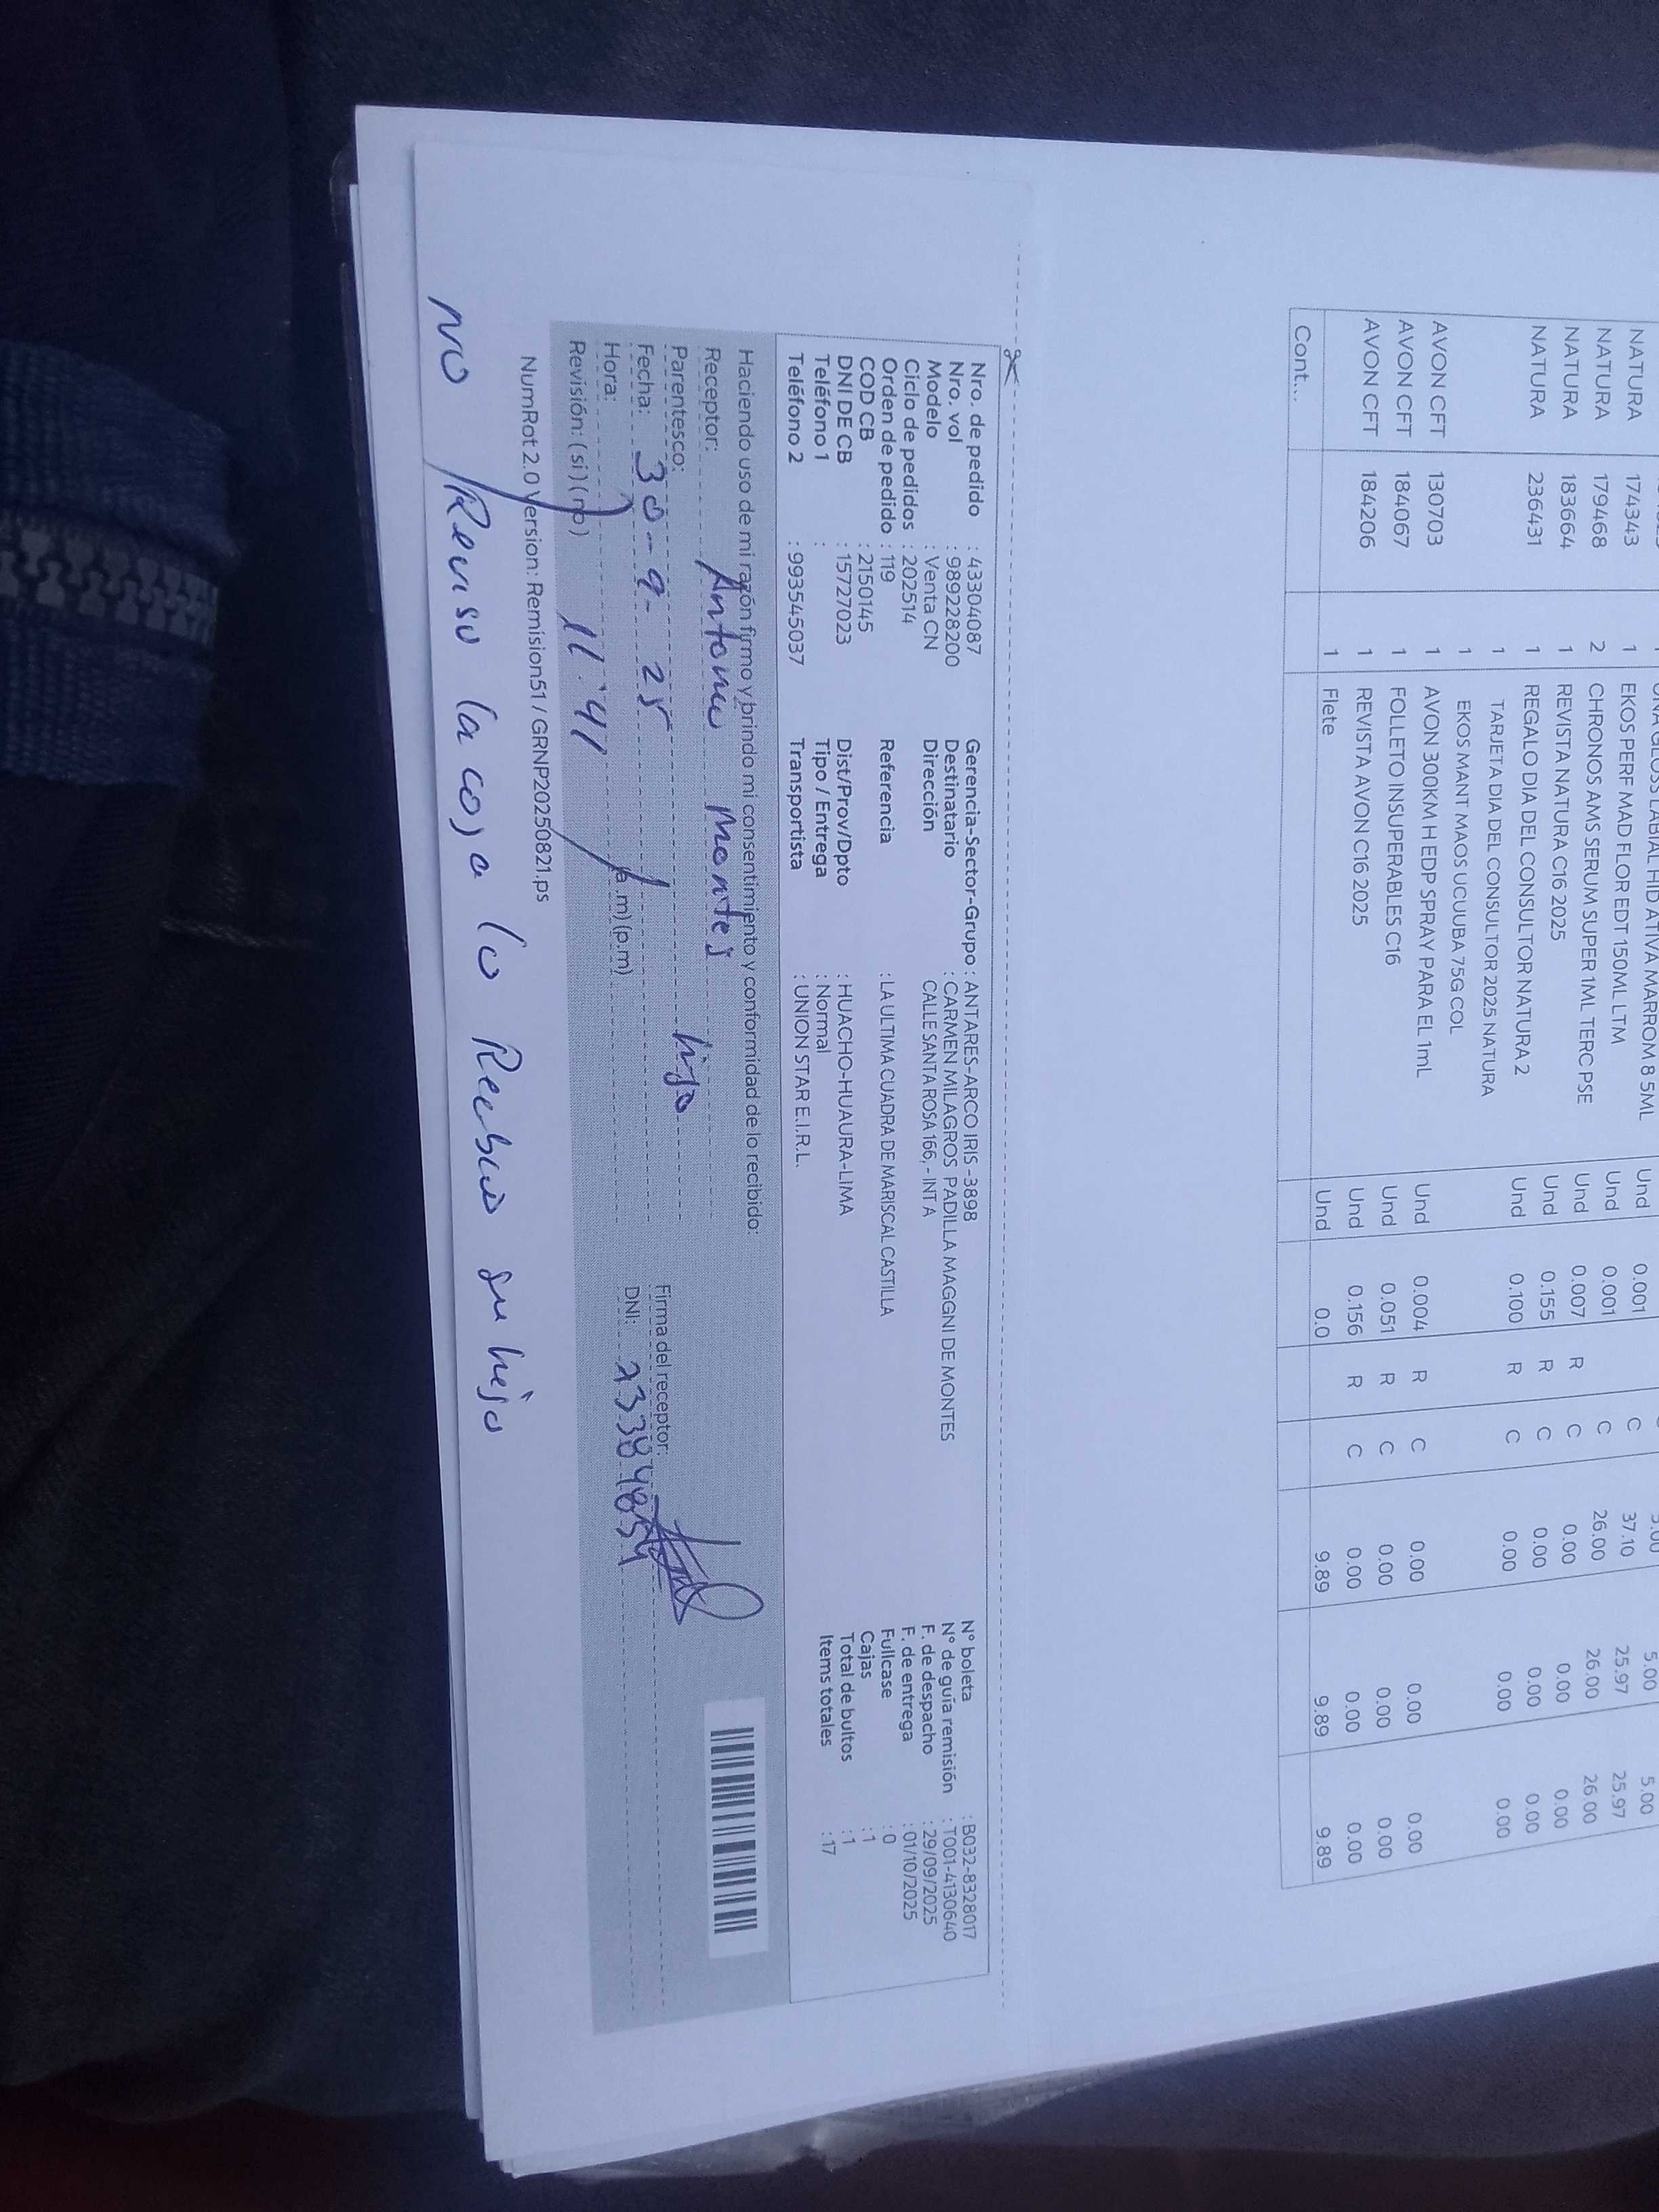 NATURA 174343 1 EKOS PERF MAD FLOR EDT 150ML LTM Und 0.001 C 37.10 25.97 25.97
NATURA 179468 2 CHRONOS AMS SERUM SUPER 1ML TERC PSE Und 0.001 C 26.00 26.00 26.00
NATURA 183664 1 REVISTA NATURA C16 2025 Und 0.007 R C 0.00 0.00 0.00
NATURA 236431 1 REGALO DIA DEL CONSULTOR NATURA 2 Und 0.155 R C 0.00 0.00 0.00
1 TARJETA DIA DEL CONSULTOR 2025 NATURA Und 0.100 R C 0.00 0.00 0.00
1 EKOS MANT MAOS UCUUBA 75G COL
AVON CFT 130703 1 AVON 300KM H EDP SPRAY PARA EL 1mL Und 0.004 R C 0.00 0.00 0.00
AVON CFT 184067 1 FOLLETO INSUPERABLES C16 Und 0.051 R C 0.00 0.00 0.00
AVON CFT 184206 1 REVISTA AVON C16 2025 Und 0.156 R C 0.00 0.00 0.00
1 Flete Und 0.0 9.89 9.89 9.89
Cont...
Nro. de pedido : 43304087 Gerencia-Sector-Grupo : ANTARES-ARCO IRIS -3898 N° boleta : B032-8328017
Nro. vol : 989228200 Destinatario : CARMEN MILAGROS PADILLA MAGGNI DE MONTES N° de guía remisión : T001-4130640
Modelo : Venta CN Dirección CALLE SANTA ROSA 166, - INT A F. de despacho : 29/09/2025
Ciclo de pedidos : 202514 F. de entrega : 01/10/2025
Orden de pedido : 119 Referencia : LA ULTIMA CUADRA DE MARISCAL CASTILLA Fullcase : 0
COD CB : 2150145 Cajas : 1
DNI DE CB : 15727023 Dist/Prov/Dpto : HUACHO-HUAURA-LIMA Total de bultos : 1
Teléfono 1 : Tipo / Entrega : Normal Items totales : 17
Teléfono 2 : 993545037 Transportista : UNION STAR E.I.R.L.
Haciendo uso de mi razón firmo y brindo mi consentimiento y conformidad de lo recibido:
Receptor: Antonio Montes
Parentesco: hijo Firma del receptor:
Fecha: 30-9-25 DNI:
Hora: 11:41 (a.m) (p.m)
Revisión: (si) (no)
NumRot 2.0 Version: Remision51 / GRNP20250821.ps
NO Reviso la caja lo Recibio su hijo